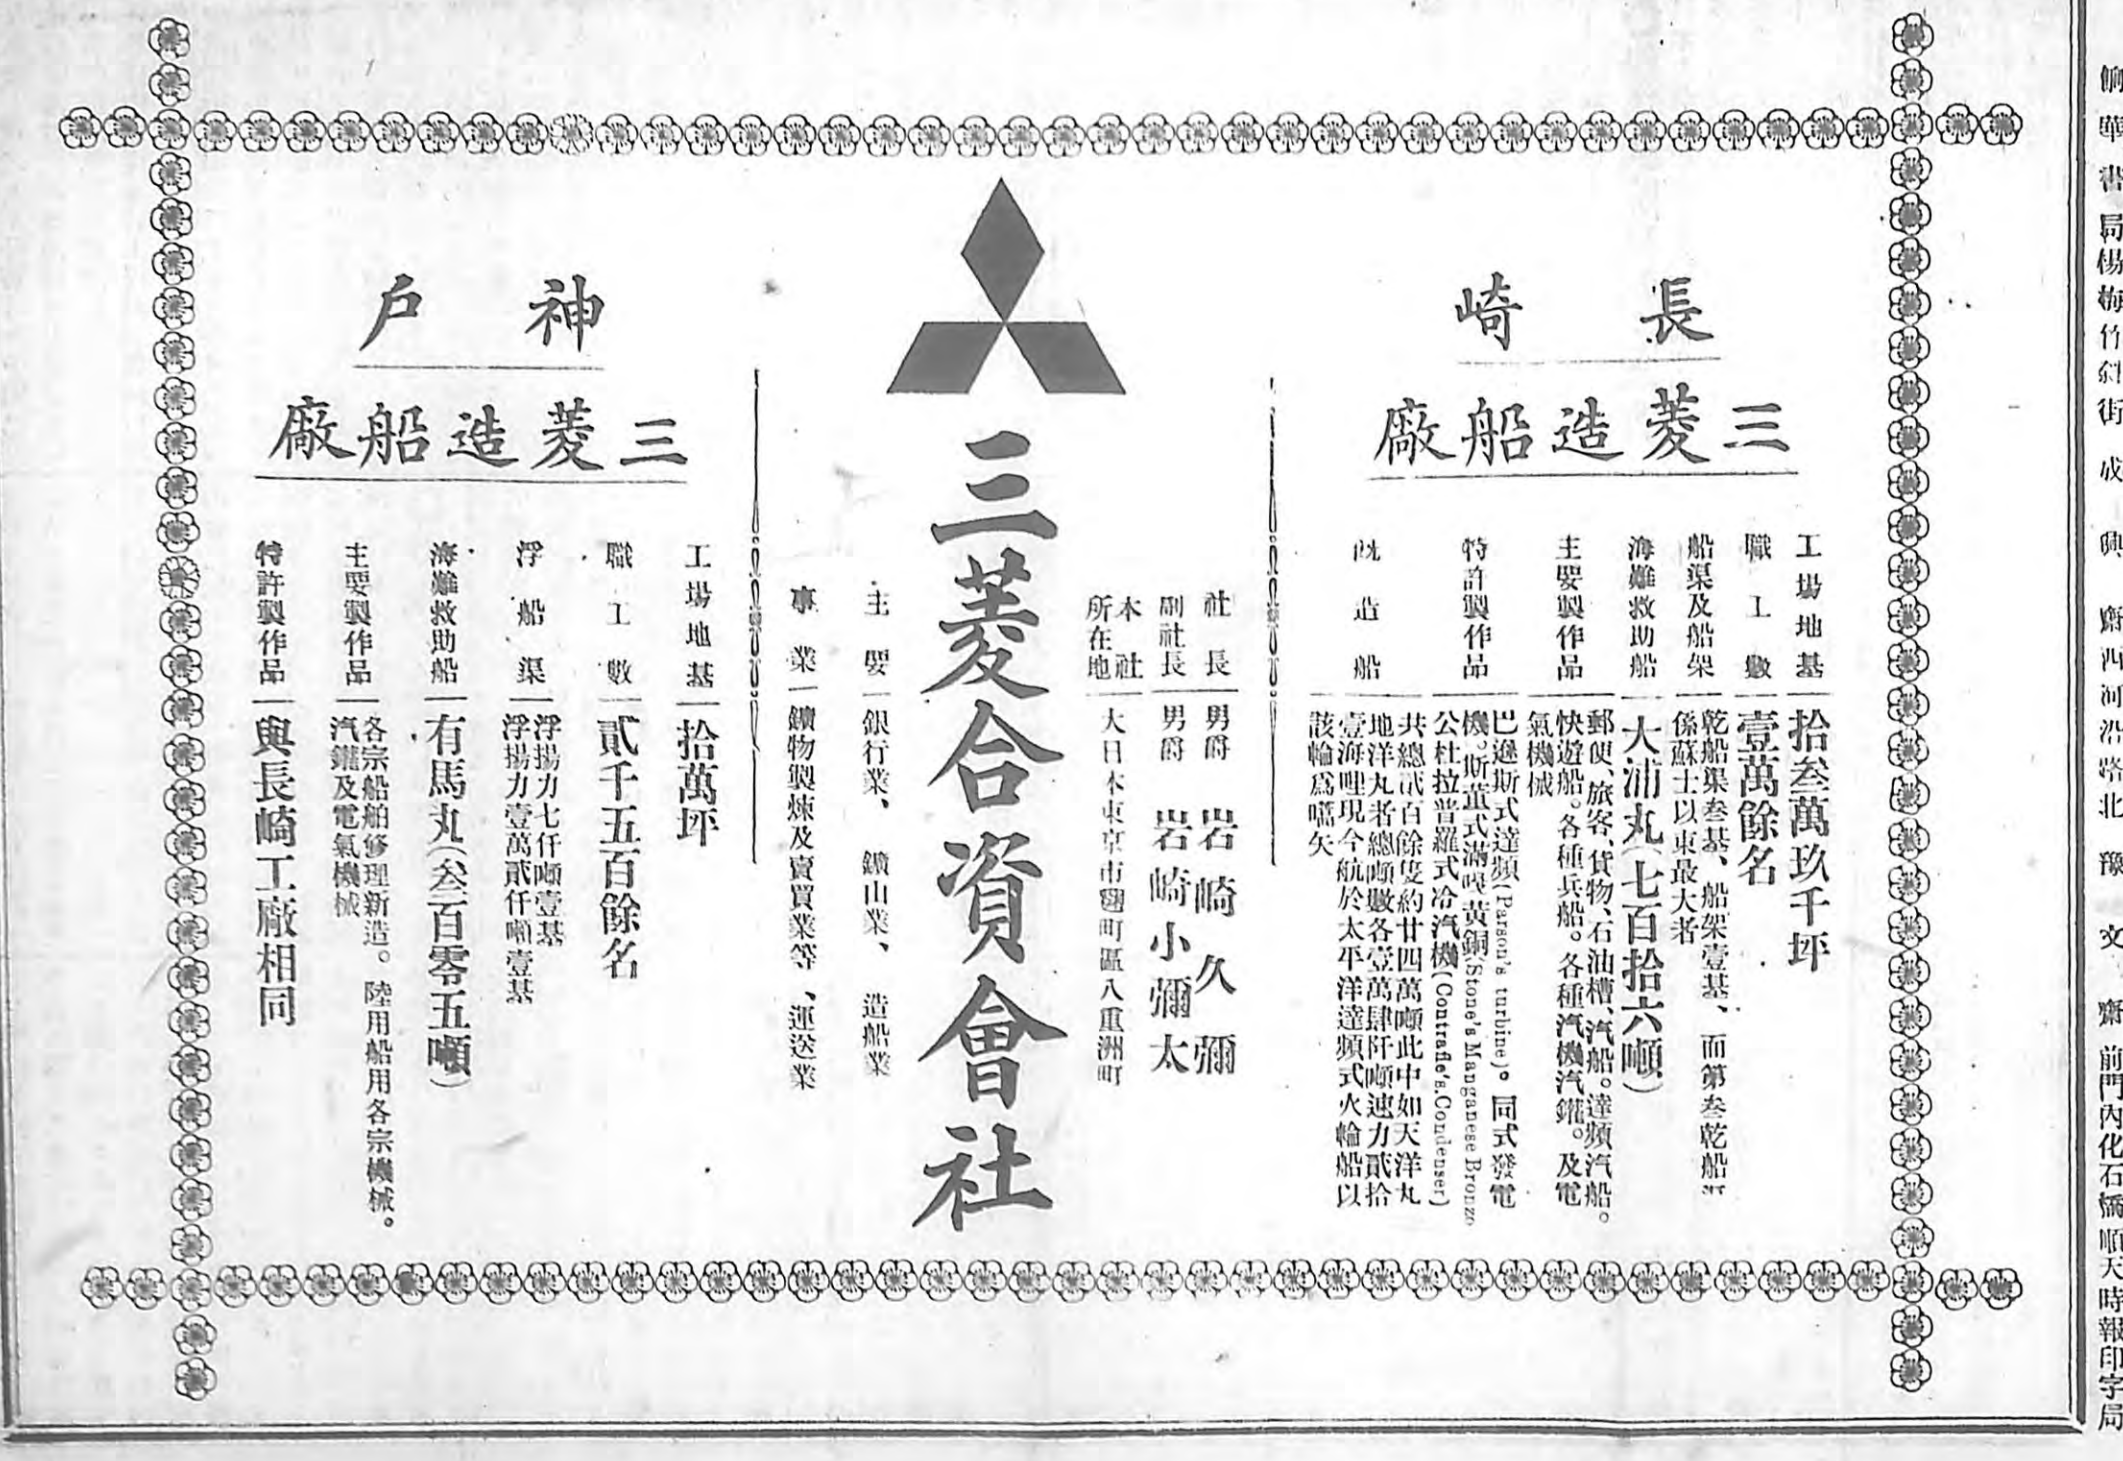 長崎
三菱造船廠
工場地基 拾叁萬玖千坪
職工數 壹萬餘名
船渠及船架 乾船渠叁基、船架壹基、而第叁乾船
係蘇士以東最大者
海難救助船 大浦丸(七百拾六噸)
主要製作品 郵便、旅客、貨物、石油槽、汽船。達頻汽船。
快遊船。各種兵船。各種汽機汽鑵。及電
氣機械
特許製作品 巴遜斯式達頻(Parson's turbine)。同式發電
機。斯董式滿唵黃銅(Stone's Manganese Bronze
公杜拉普羅式冷汽機(Contraflo's Condenser)
既造船 共總貳百餘隻約廿四萬噸此中如天洋丸
地洋丸者總噸數各壹萬肆阡噸速力貳拾
壹海哩現今航於太平洋達頻式火輪船以
該輪爲嚆矢
社長 男爵 岩崎久彌
副社長 男爵 岩崎小彌太
本社所在地 大日本東京市麴町區八重洲町
三菱合資會社
主要 銀行業、鑛山業、造船業
事業 鑛物製煉及賣買業等、運送業
神戶
三菱造船廠
工場地基 拾萬坪
職工數 貳千五百餘名
浮船渠 浮揚力七仟噸壹基
浮揚力壹萬貳仟噸壹基
海難救助船 有馬丸(叁百零五噸)
主要製作品 各宗船舶修理新造。陸用船用各宗機械。
汽鑵及電氣機械
特許製作品 與長崎工廠相同
華書局楊梅竹斜街 成興齋西河沿路北 豫文齋前門內化石橋順天時報印字局